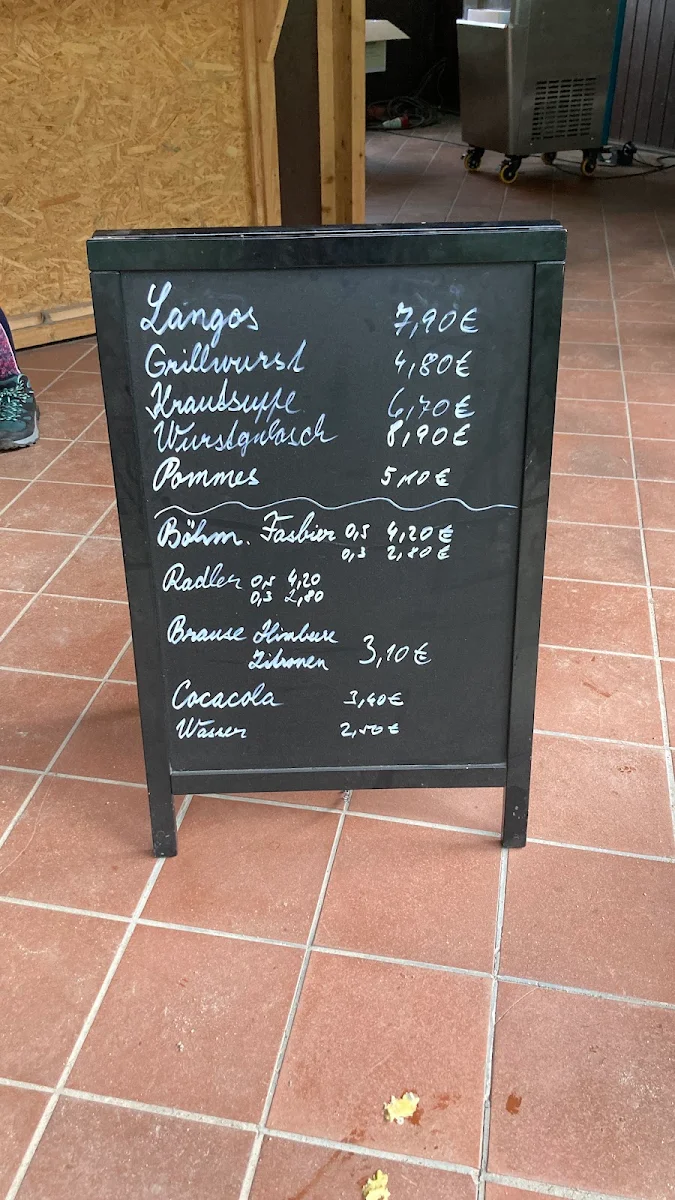 Langos 7,90 €
Grillwurst 4,80 €
Krautsuppe 6,70 €
Wurstgulasch 8,90 €
Pommes 5,10 €
Böhm. Fasbier 0,5 4,20 €
0,3 2,80 €
Radler 0,5 4,20
0,3 2,80
Brause Himbeere
Zitronen 3,10 €
Cocacola 3,40 €
Wasser 2,50 €